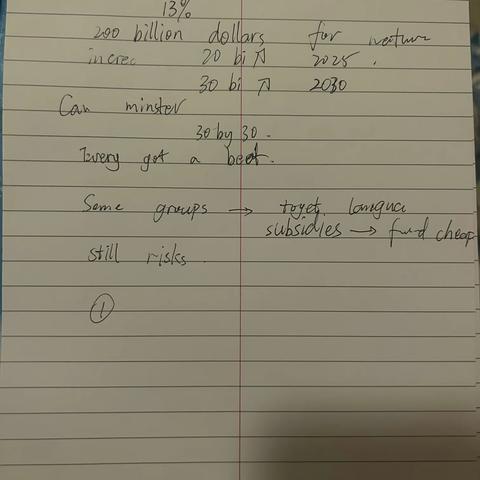 13%
200 billion dollars for nature
increc 20 bi ↗ 2025.
30 bi ↗ 2030
Can minster
30 by 30.
Every got a
Some groups → langua
subsidies → cheap
still risks.
①